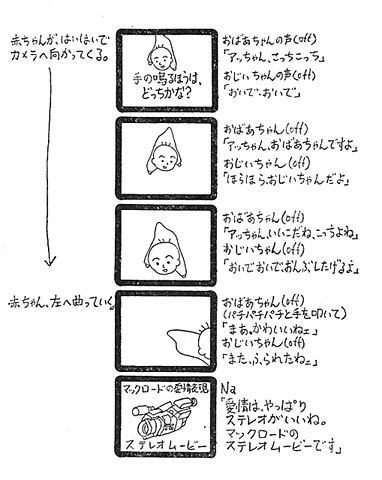 赤ちゃんが、はいはいで
カメラへ向かってくる。
手の鳴るほうは、
どっちかな?
おばあちゃんの声(off)
「アッちゃん、こっちこっち」
おじいちゃんの声(off)
「おいで、おいで」
おばあちゃん(off)
「アッちゃん、おばあちゃんですよ」
おじいちゃん(off)
「ほらほら、おじいちゃんだよ」
おばあちゃん(off)
「アッちゃん、いいこだね、こっちよね」
おじいちゃん(off)
「おいでおいで、おんぶしたげるよ」
赤ちゃん、左へ曲っていく。
おばあちゃん(off)
(パチパチパチと手を叩いて)
「まあ。かわいいねェ」
おじいちゃん(off)
「また、ふられたねェ」
マックロードの愛情表現
ステレオムービー
Na
「愛情は、やっぱり
ステレオがいいね。
マックロードの
ステレオムービーです」